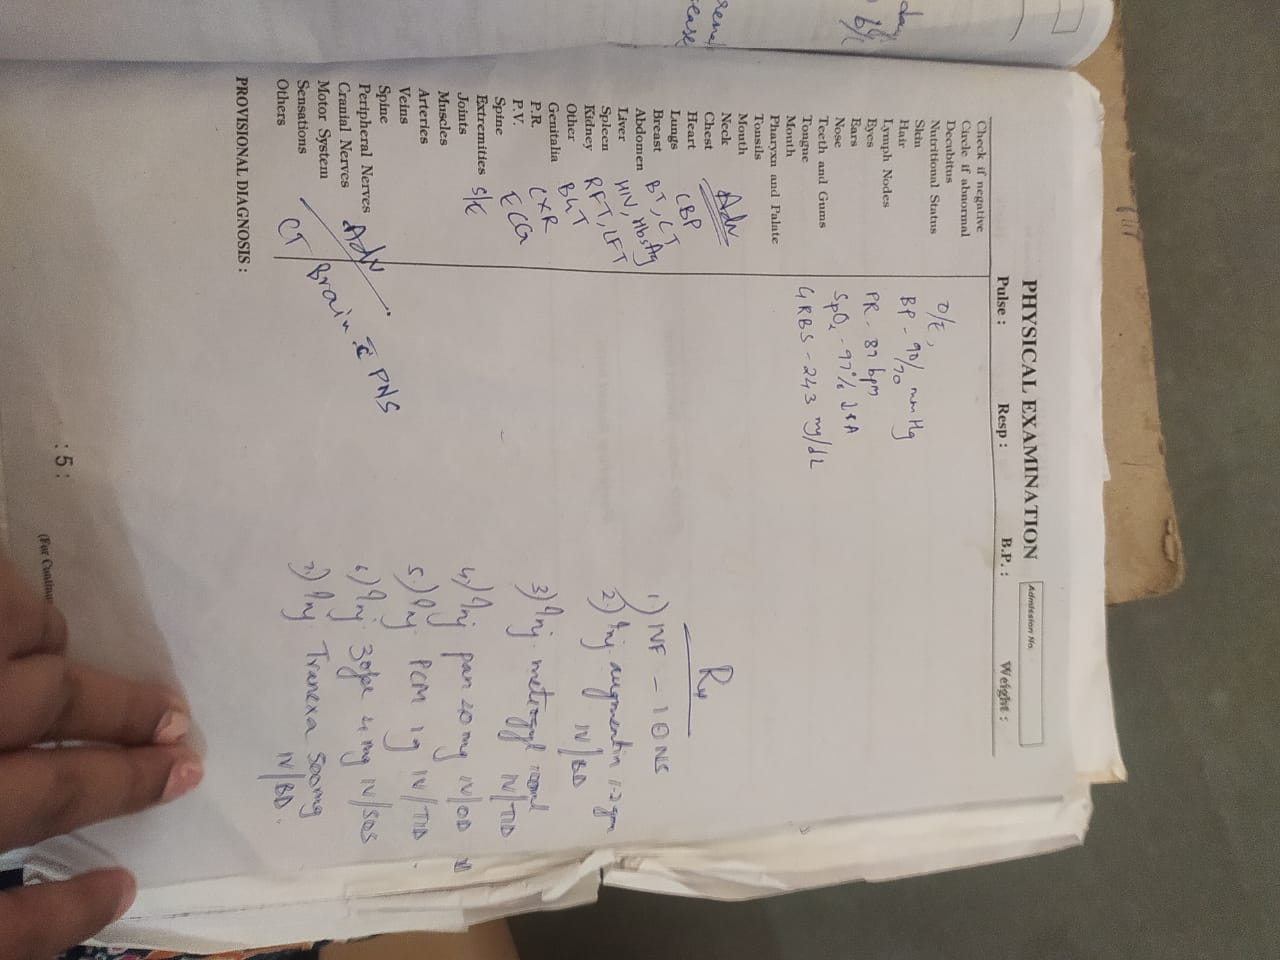 day
b/l
renal
PHYSICAL EXAMINATION
Admission No.
Pulse :
Resp :
B.P. :
Weight :
Check if negative
Circle if abnormal
Decubitus
Nutritional Status
Skin
Hair
Lymph Nodes
Eyes
Ears
Nose
Teeth and Gums
Tongue
Mouth
Pharyxn and Palate
Tonsils
Mouth
Neck
Chest
Heart
Lungs
Breast
Abdomen
Liver
Spleen
Kidney
Other
Genitalia
P.R.
P.V.
Spine
Extremities
Joints
Muscles
Arteries
Veins
Spine
Peripheral Nerves
Cranial Nerves
Motor System
Sensations
Others
O/E,
BP - 90/70 mmHg
PR - 89 bpm
SpO2 - 97%
GRBS - 243 mg/dL
Adv
CBP
BT, CT
HIV, HbsAg
RFT, LFT
BGT
CXR
ECG
S/E
Adv
CT Brain c̄ PNS
Rx
1) IVF - 1 NS
2) Inj. augmentin 1.2gm
IV/BD
3) Inj. metrogyl 100ml
IV/TID
4) Inj pan 40mg IV/OD
5.) Inj. PCM 1g IV/TID.
6) Inj 4mg IV/SOS
7) Inj Tranexa 500mg
IV/BD.
PROVISIONAL DIAGNOSIS :
: 5 :